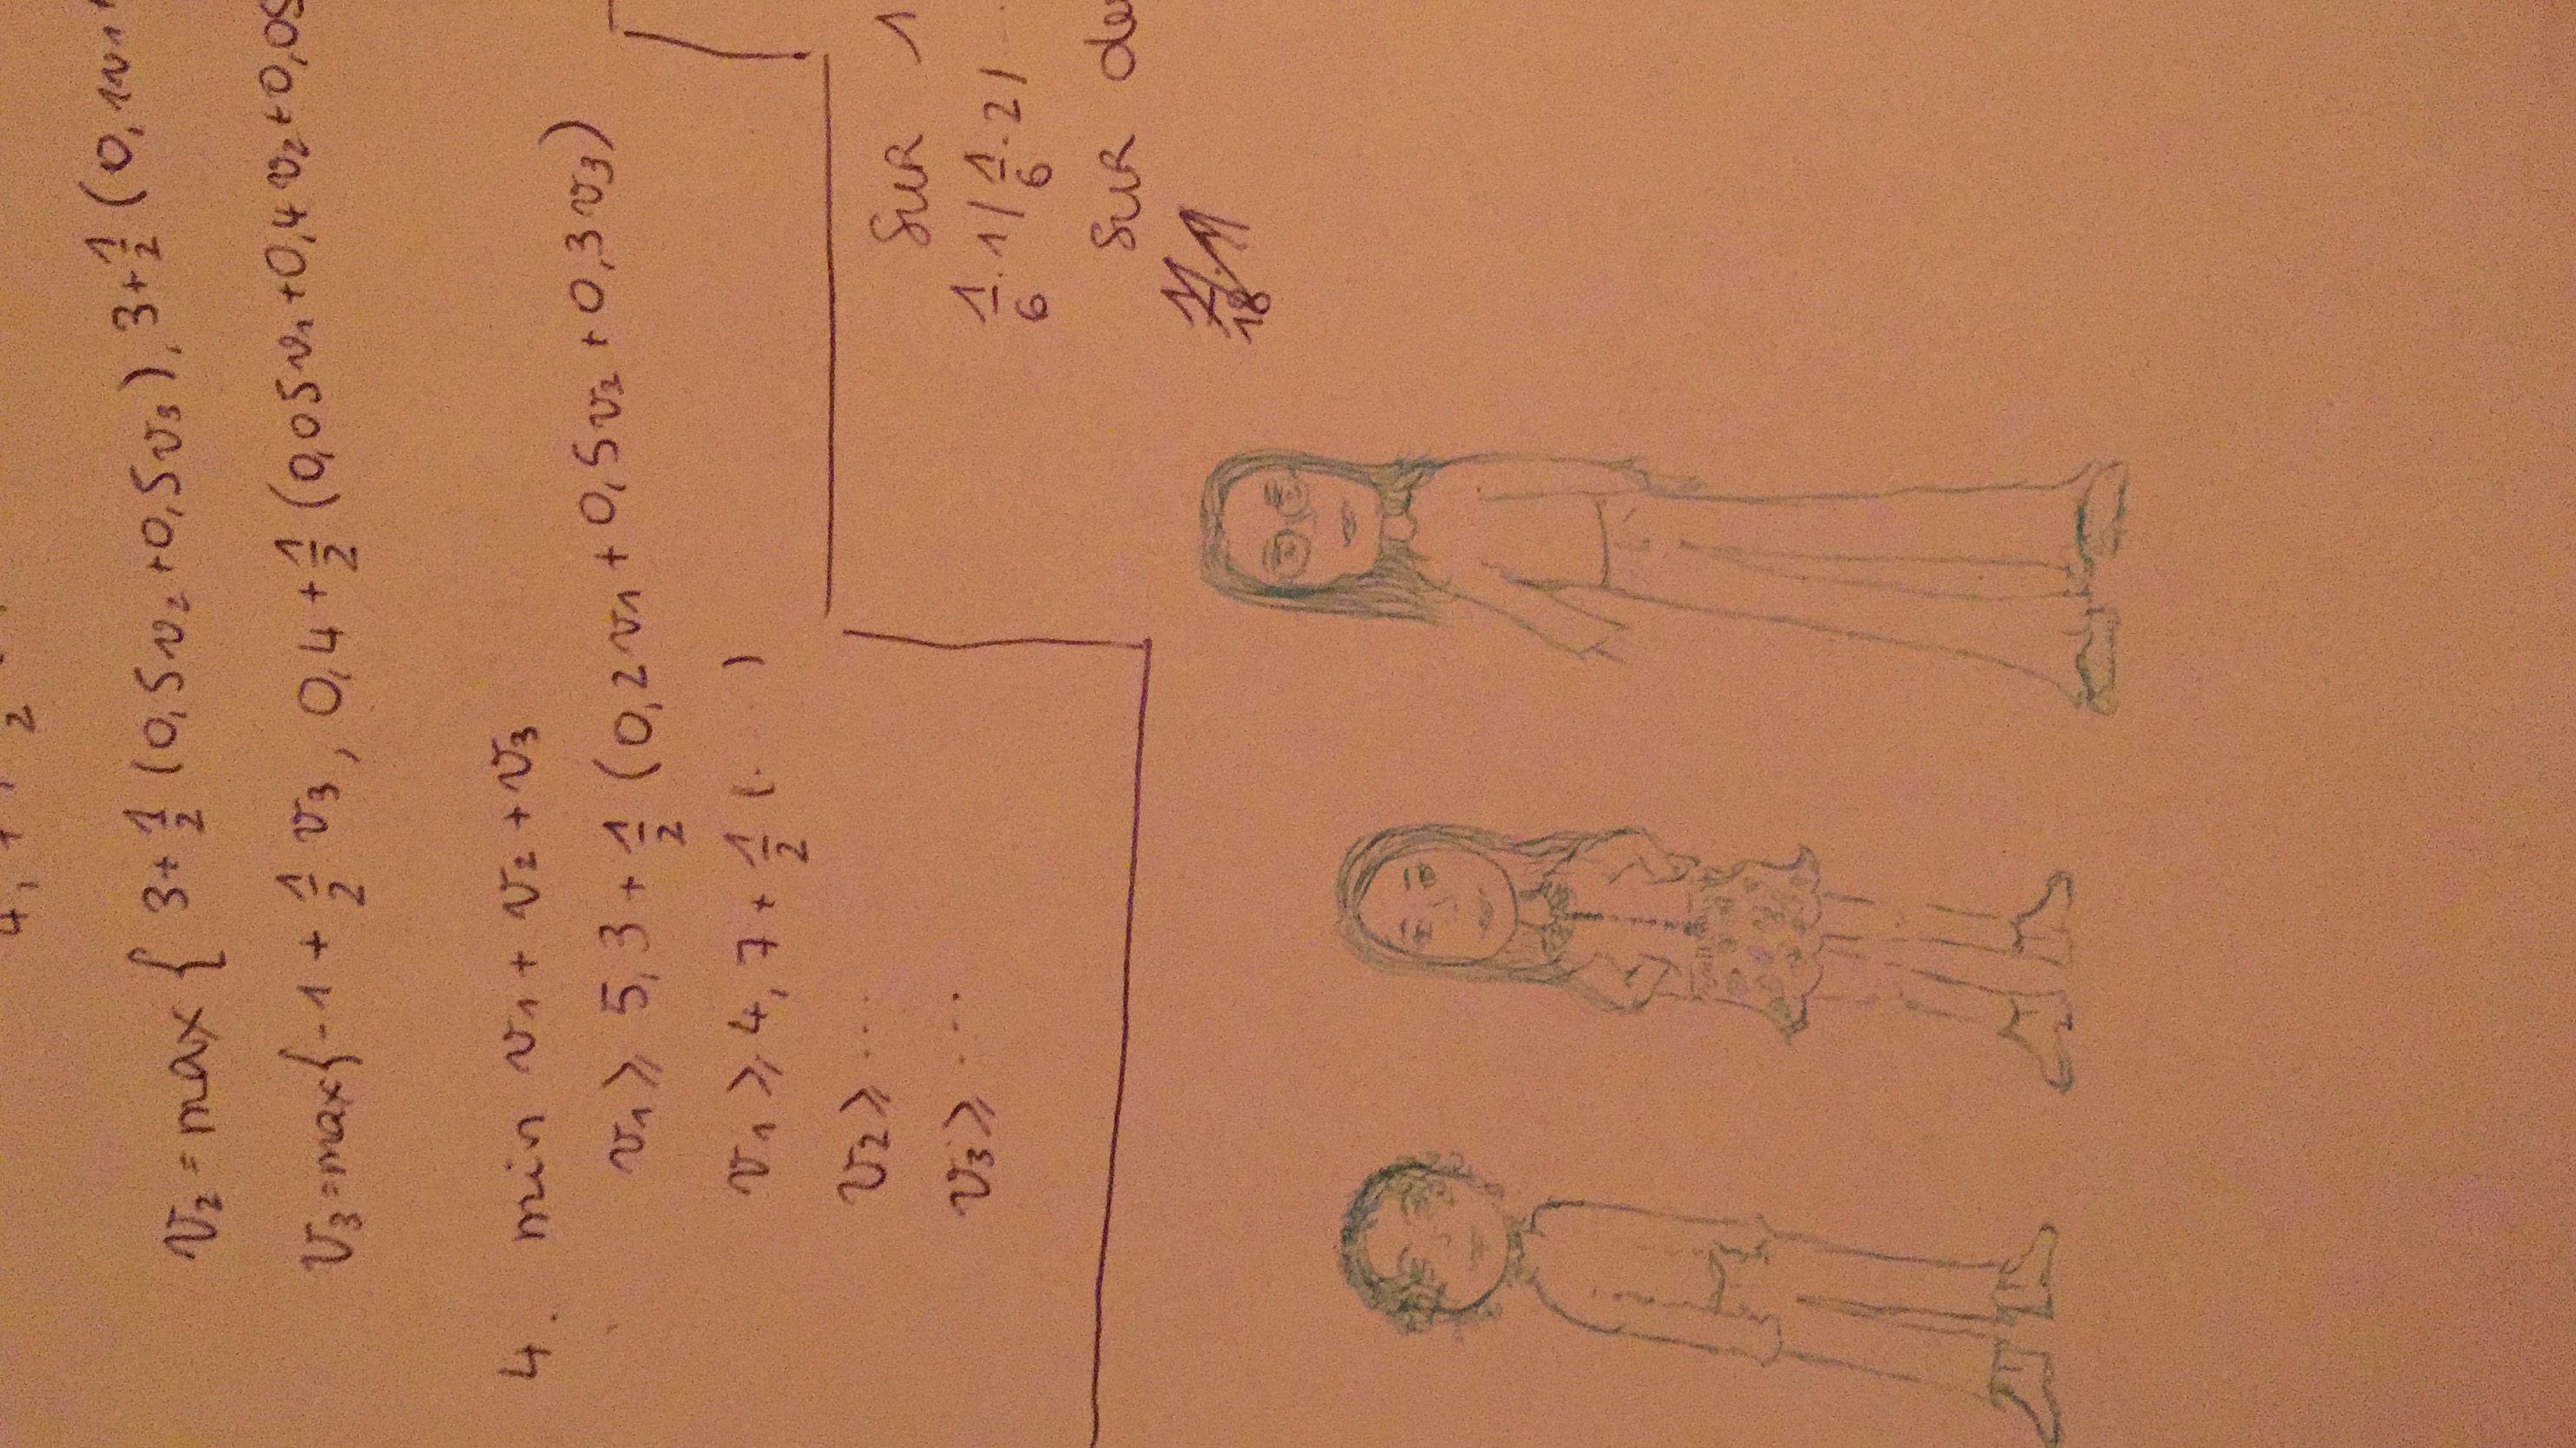 4,7+ 1/2
v₂ = max { 3+ 1/2 (0,5v₂ +0,5v₃), 3+ 1/2 (0,1v₁+
v₃ = max{ -1 + 1/2 v₃ , 0,4 + 1/2 (0,05v₁ +0,4 v₂ +0,05
4. min v₁ + v₂ + v₃
v₁ ⩾ 5,3 + 1/2 (0,2v₁ + 0,5v₂ + 0,3v₃)
v₁ ⩾ 4,7 + 1/2 (... )
v₂ ⩾ ...
v₃ ⩾ ...
SUR 1
1/6 . 1 / 1/6 . 2 / ...
SUR de
1/18 . 1